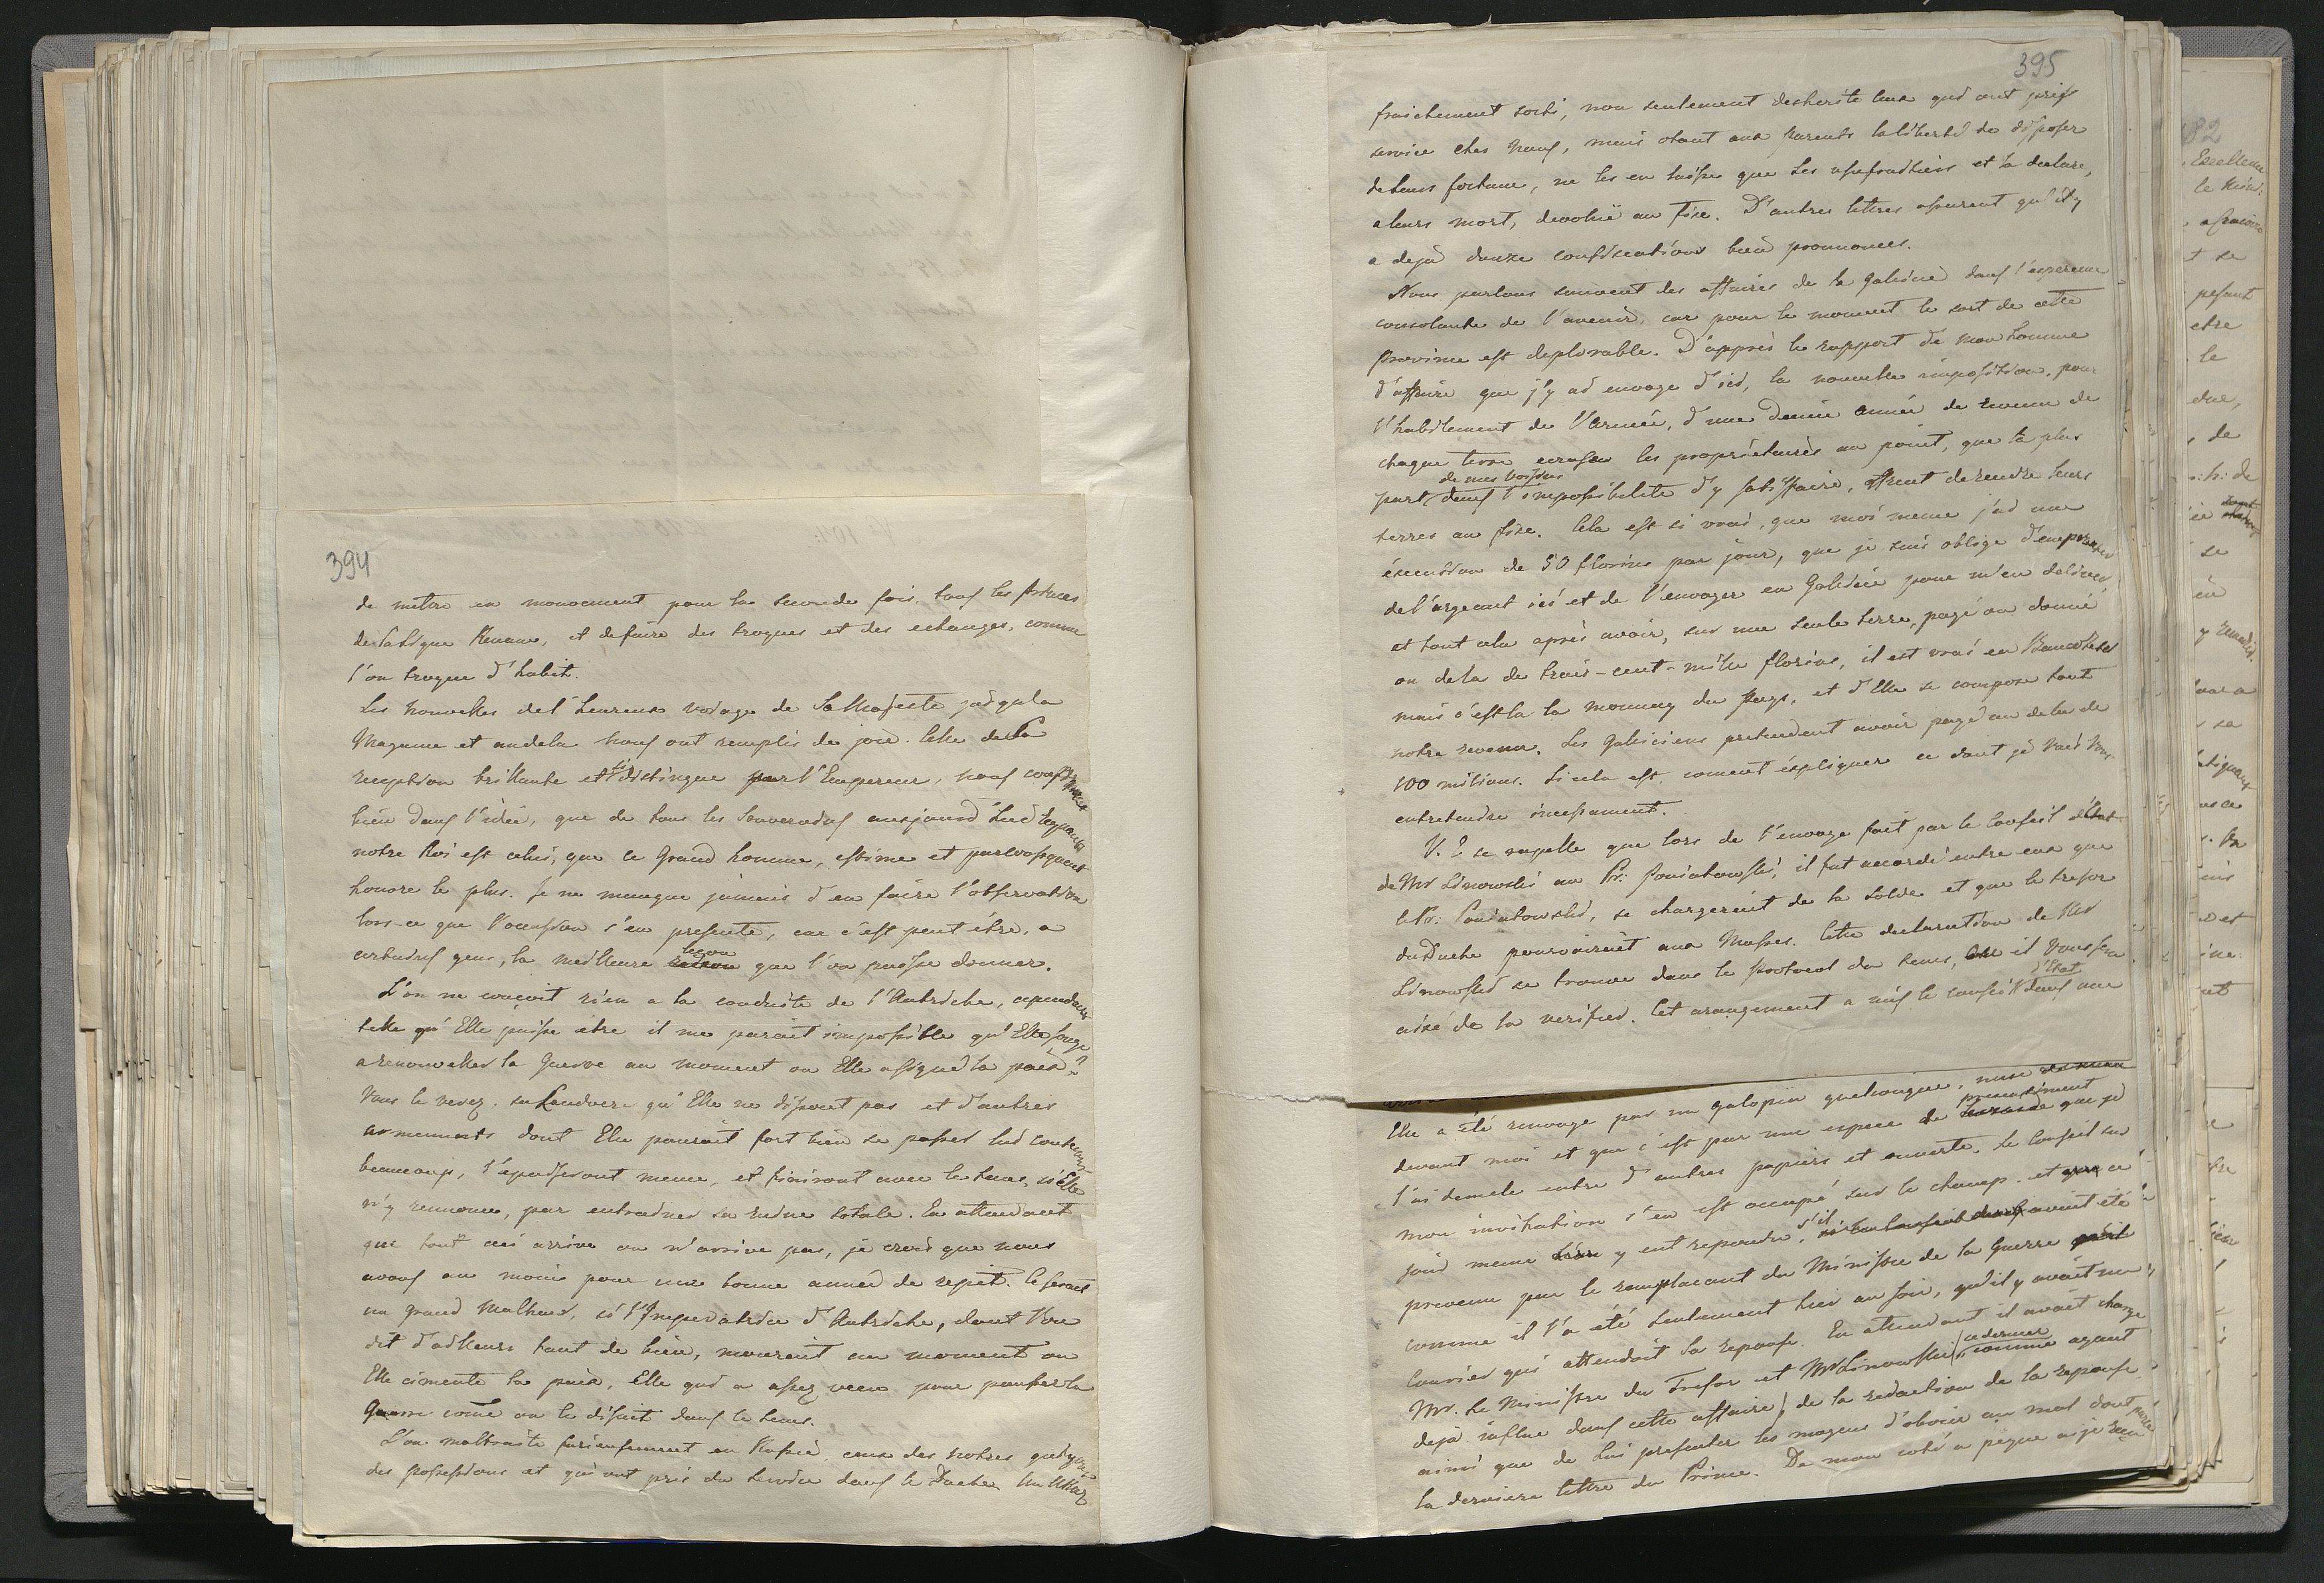 394
de mettre en mouvement pour la seconde fois, tous les
de la Ligue Renane, et de faire des troques et des echanges, comme
l'on troque d'habit.
Les nouvelles de l'heureux voiage de Sa Majesté jusqu'a
Mayence et audela nous ont remplis de joie. Celle de la
reception brillante et si distingue par l'Empereur, nous
bien dans l'idée, que de tous les Souverains aujourd'hui regnants
notre Roi est celui, que ce Grand homme, estime et par consequent
honore le plus. Je ne manque jamais d'en faire l'observation
lors-ce que l'occasion s'en presente, car c'est peut être, a
certains gens, la meilleure leçon que l'on puisse donner.
L'on ne conçoit rien a la conduite de l'Autriche, cependant
telle qu'Elle puisse être il me parait impossible qu'Elle songe
a renouveller la Guerre au moment ou Elle a signé la paix?
Vous le verez, sa Landwere qu'Elle ne dissout pas et d'autres
armements dont Elle pourait fort bien se passer lui
beaucoup, l'epuiseront meme, et finiront avec le tems, si Elle
n'y renonce, par entrainer sa ruine totale. En attendant
que tout ceci arrive ou n'arrive pas, je crois que nous
avons au moins pour une bonne année de repit. Ce serait
un grand Malheur, si l'Imperatrice d'Autriche, dont l'on
dit d'ailleurs tant de bien, mourait au moment ou
Elle cimente la paix, Elle qui a assez vecu pour
Guerre come on le disait dans le tems.
L'on maltraite furieusement en Russie, ceux des notres qui y ont
des possessions et qui ont pris du service dans le Duché. Un Ukaz
395
fraichement sorti, non seulement desherite ceux qui ont pris
service chez nous, mais otant aux parents la liberté de disposer
de leurs fortune, ne les en laisse que les usufruitiers et la declare,
a leurs mort, devolue au Fisc. D'autres lettres assurent qu'il y
a dejà douze confiscations bien prononcés.
Nous parlons souvent des affaires de la Galicie dans l'esperence
consolante de l'avenir, car pour le moment le sort de cette
Province est deplorable. D'apprès le rapport de mon homme
d'affaire que j'y ai envoye d'ici, la nouvelle imposition, pour
l'habillement de l'Armée, d'une demie année de revenu de
chaque terre ecrase les propriétaires au point, que la plus
part de mes voisins dans l'impossibilite d'y satisfaire, offrent de rendre leurs
terres au fisc. Cela est si vrai, que moi meme j'ai une
execution de 50 florins par jour, que je suis oblige d'emprunter
de l'argeant ici et de l'envoyer en Galicie pour m'en delivrer,
et tout cela après avoir, sur une seule terre, payé ou donné
au dela de trois-cent-mille florins, il est vrai en Bancozetel
mais c'est la la monnay du Pays, et d'Elle se compose tout
notre revenu. Les Galiciens pretendent avoir payé au dela de
100 milions. Si cela est, coment expliquer ce dont je vais Vous
entretendre incessament.
V. E se rapelle que lors de l'envoye fait par le Conseil d'Etat
de Mr Linowski au Pr: Poniatowski, il fut accordé entre eux que
le Pr: Poniatowski, se chargerait de la solde et que le tresor
du Duché pourvoirait aux Masses. Cette declaration de Mr
Linowski se trouve dans le protocol du tems, il Vous sera
aisé de la verifier. Cet arangement a mis le conseil d'Etat dans une
Elle a été envoye par un galopin quelconque, mise
devant moi et que c'est par une espece de pressentiment que je
l'ai demele entre d'autres papiers et ouverte. Le Conseil sur
mon invitation s'en est occupé sur le champ. et ce
soir meme y eut repondu, s'il avait été
prevenu par le remplacant du Ministre de la Guerre
comme il l'a été seulement hier au soir, qu'il y avait un
Courier qui attendait sa reponse. En attendant il avait charge
Mr. Le Ministre du Tresor et Mr Linowski (ce dernier comme ayant
dejà influe dans cette affaire) de la redaction de la reponse
ainsi que de Lui presenter les moyens d'obvier au mal dont parle
la derniere lettre du Prince. De mon coté a peine ai je reçu